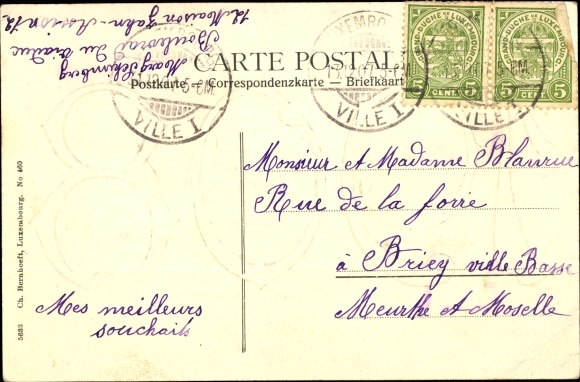 CARTE POSTALE
Postkarte — Correspondenzkarte — Briefkaart
Marg Schimberg
Boulevard du Viaduc
12 Maison Jahn 12
LUXEMBO
VILLE I
5-6M
GRAND-DUCHÉ DE LUXEMBOURG
5 CENT. 5
GRAND-DUCHÉ DE LUXEMBOURG
5 CENT. 5
Monsieur et Madame
Rue de la foire
à Briey ville Basse
Meurthe et Moselle
Mes meilleurs
souhaits
5683 Ch. Bernhoeft, Luxembourg. No 460